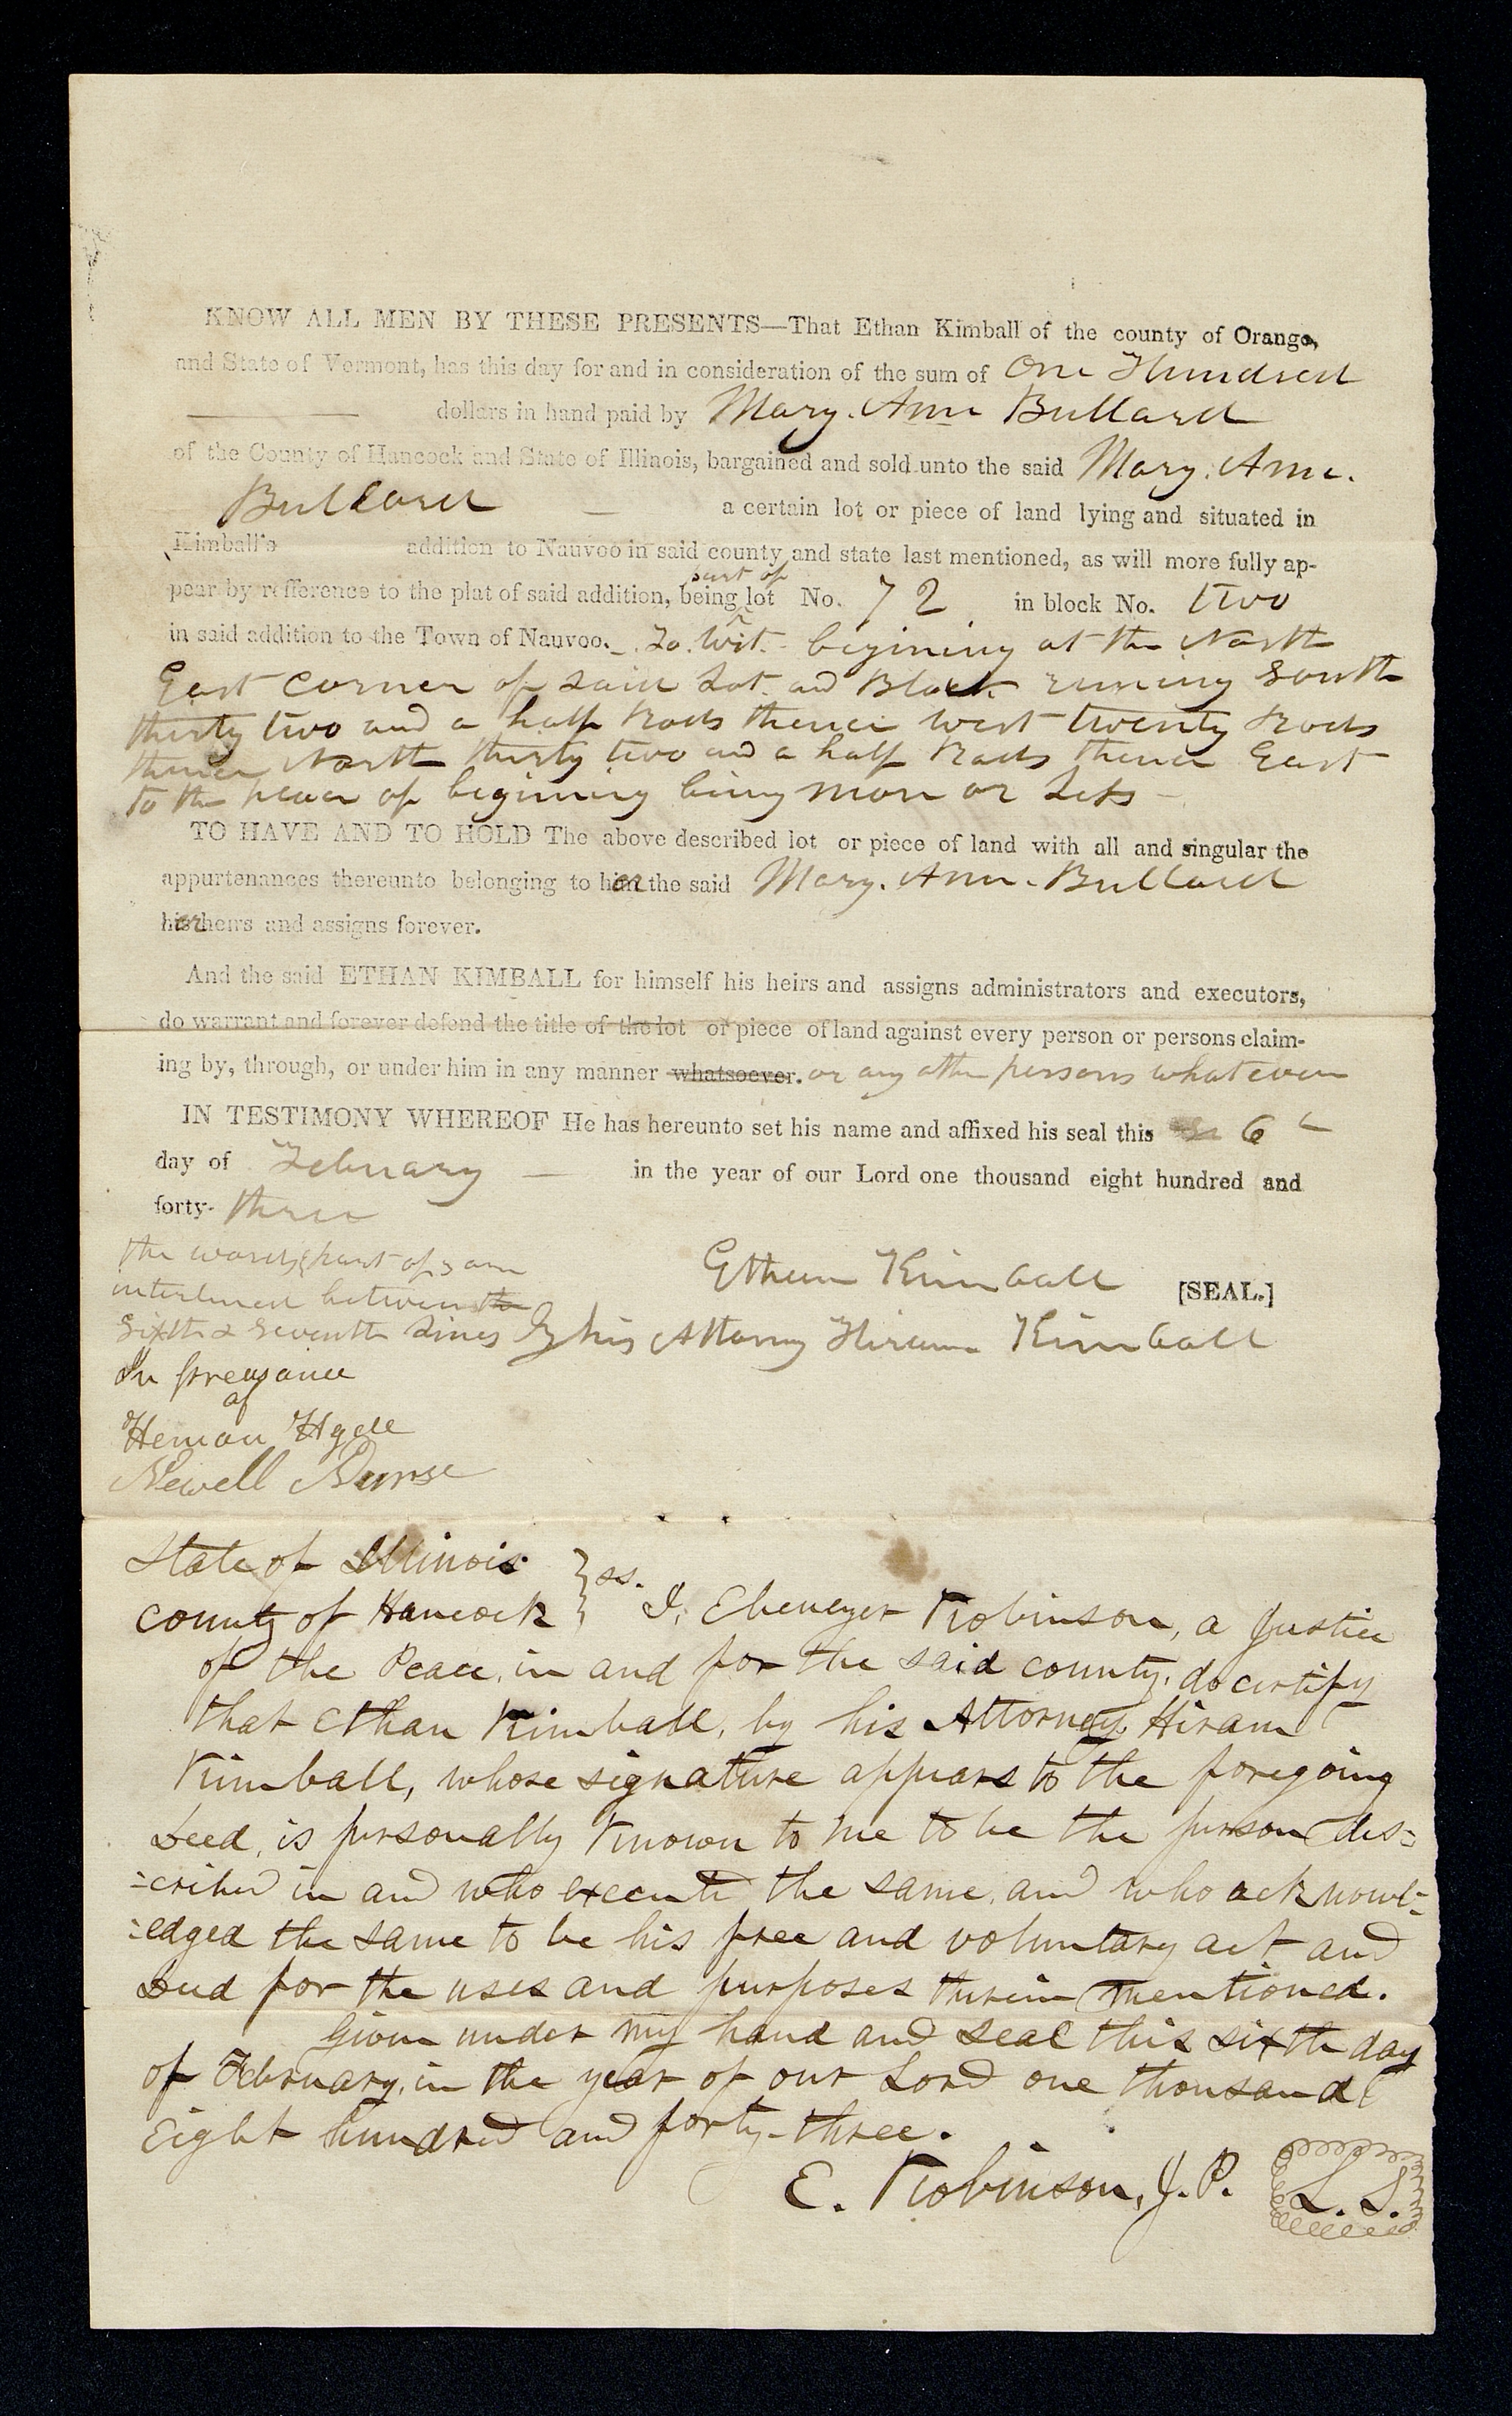 KNOW ALL MEN BY THESE PRESENTS—That Ethan Kimball of the county of Orange,
and State of Vermont, has this day for and in consideration of the sum of One Hundred
dollars in hand paid by Mary. Ann Bullard
of the County of Hancock and State of Illinois, bargained and sold unto the said Mary. Ann.
Bullard — a certain lot or piece of land lying and situated in
Kimball's addition to Nauvoo in said county and state last mentioned, as will more fully ap-
part of
pear by refference to the plat of said addition, being ^ lot No. 72 in block No. two
in said addition to the Town of Nauvoo. To. Wit. - begining at the North
East corner of said Lot. and Block runing South
thirty two and a half Rods thence west twenty Rods
thence North thirty two and a half Rods thence East
to the place of begining being more or Less —
TO HAVE AND TO HOLD The above described lot or piece of land with all and singular the
appurtenances thereunto belonging to her the said Mary. Ann. Bullard
her heirs and assigns forever.
And the said ETHAN KIMBALL for himself his heirs and assigns administrators and executors,
do warrant and forever defend the title of the lot or piece of land against every person or persons claim-
ing by, through, or under him in any manner whatsoever. or any other persons whatever
IN TESTIMONY WHEREOF He has hereunto set his name and affixed his seal this 6
day of February — in the year of our Lord one thousand eight hundred and
forty- three
the words part of
interlined between the
sixth & seventh Lines
Ethan Kimball [SEAL.]
By his Attorney Hiram Kimball
In presance
of
Heman Hyde
Newell Nurse
State of Illinois } ss.
County of Hancock } I, Ebenezer Robinson, a Justice
of the Peace, in and for the said county, do certify
that Ethan Kimball, by his Attorney, Hiram
Kimball, whose signature appears to the foregoing
Deed, is personally known to me to be the person des=
=cribed in and who executed the same, and who acknowl=
=edged the same to be his free and voluntary act and
Deed for the uses and purposes therein mentioned.
Given under my hand and seal this sixth day
of February, in the year of our Lord one thousand
Eight hundred and forty-three.
E. Robinson, J. P. L. S.